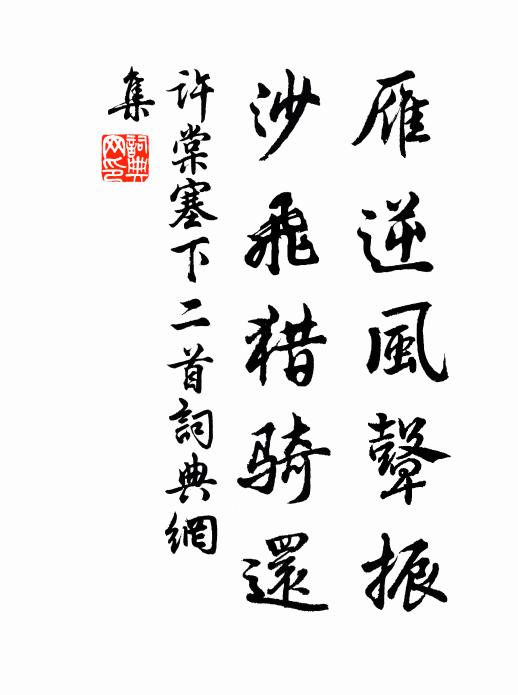 雁逆風鼙振
沙飛猎騎還
許棠塞下二首詞典網
集
詞典网印